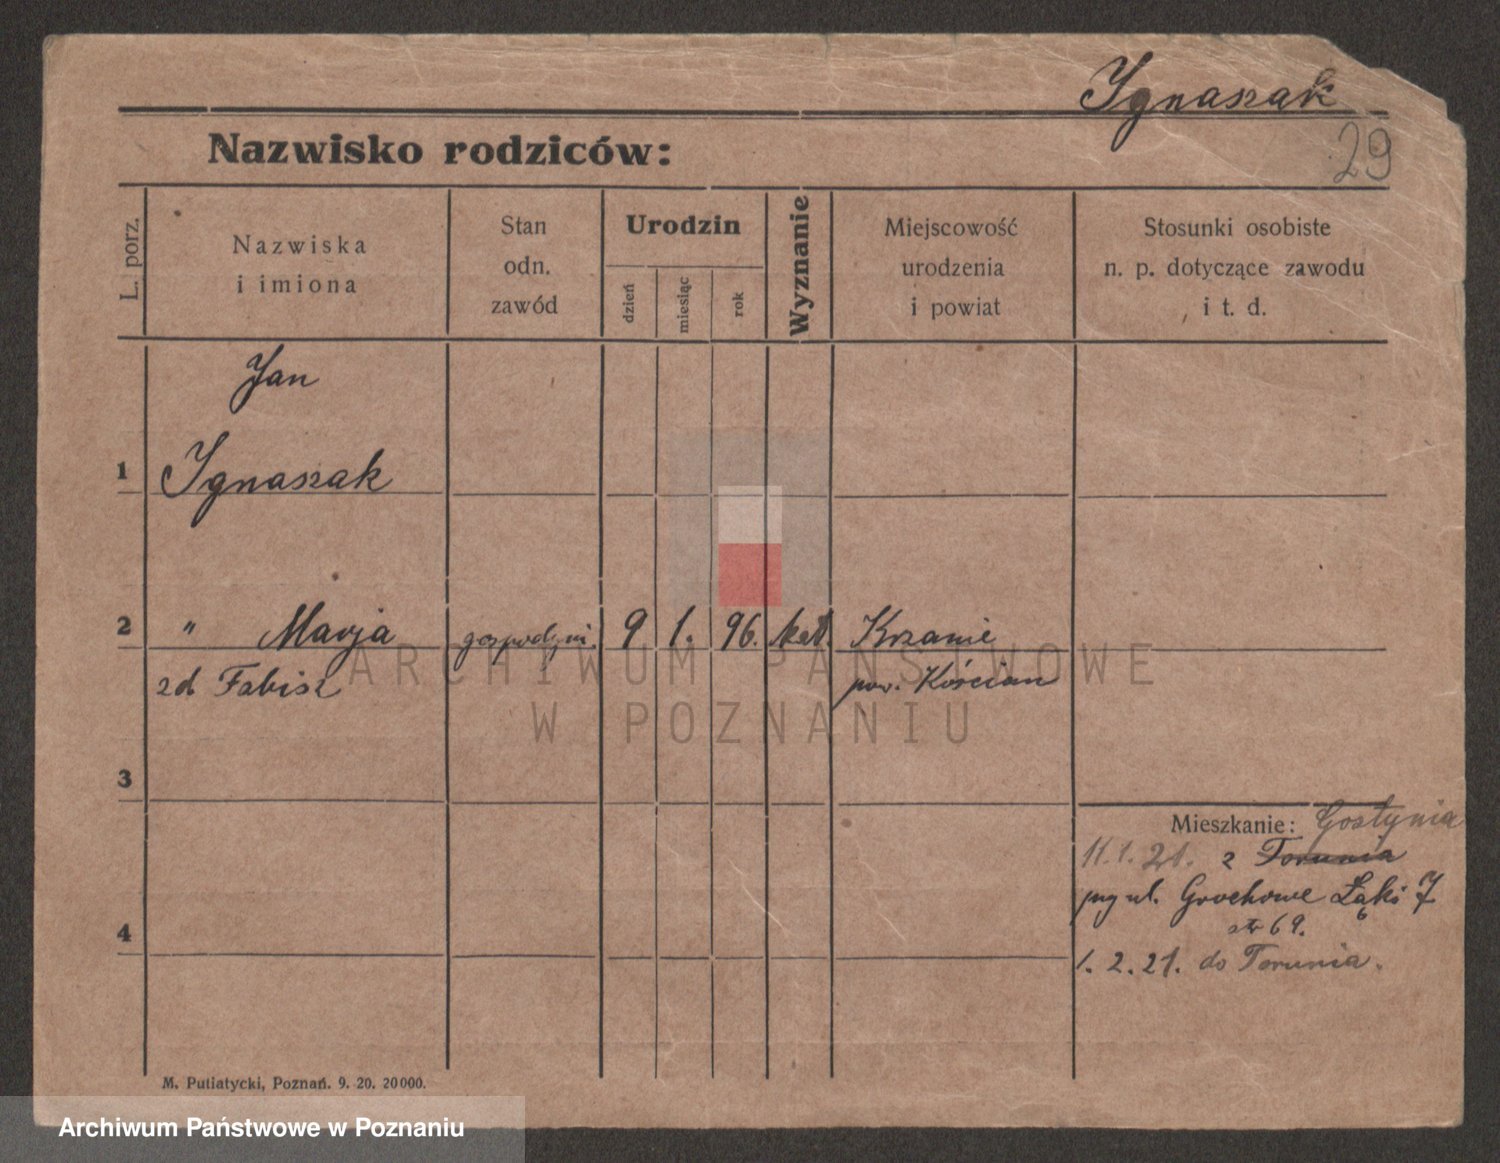 Ignaszak
29
Nazwisko rodziców:
L. porz.
Nazwiska
i imiona
Stan
odn.
zawód
Urodzin
dzień
miesiąc
rok
Wyznanie
Miejscowość
urodzenia
i powiat
Stosunki osobiste
n. p. dotyczące zawodu
i t. d.
Jan
1 Ignaszak
2 " Marja gospodyni. 9 1. 96. kat. Krzanie
zd Fabisz pow. Kościan
3
Mieszkanie: Gostynia
11.1.21. z Torunia
ul. Grochowe Łąki 7
6
str 69.
4
1.2.21. do Torunia.
M. Putiatycki, Poznań. 9. 20. 20000.
ARCHIWUM PAŃSTWOWE
W POZNANIU
Archiwum Państwowe w Poznaniu